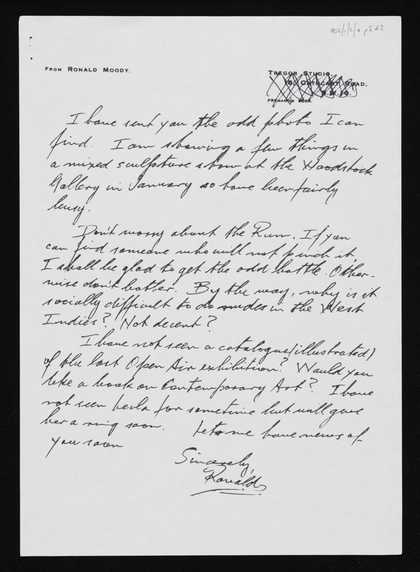 From Ronald Moody.
Tregor Studio,
Road.
S.W.10.
I have sent you the odd photo I can
find. I am showing a few things in
a mixed sculpture show at the Woodstock
Gallery in January so have been fairly
busy.
Don't worry about the Rum. If you
can find someone who will not pinch it,
I shall be glad to get the odd bottle. Other-
wise don't bother. By the way, why is it
socially difficult to do nudes in the West
Indies? Not decent?
I have not seen a catalogue (illustrated)
of the last Open Air exhibition? Would you
like a book on Contemporary Art? I have
not seen for sometime but will give
her a ring soon. Let me have news of
you soon
Sincerely,
Ronald.